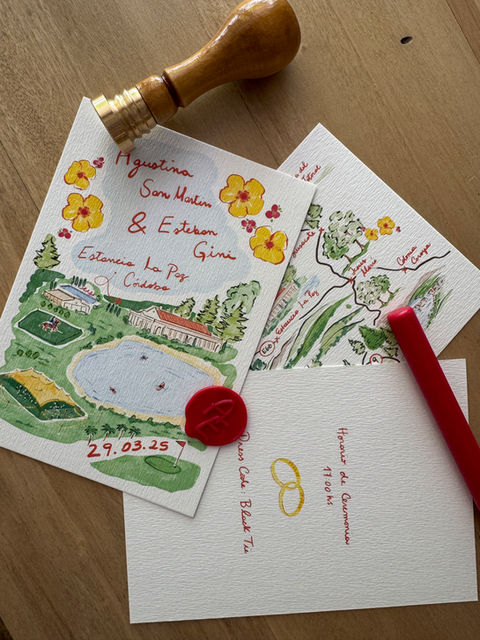 Agustina
San Martin
& Esteban
Gini
Estancia La Paz
Córdoba
29.03.25
Estancia La Paz
Jesús
María
Colonia
Caroya
Horario de Ceremonia
17:00 hs
Dress Code: Black Tie